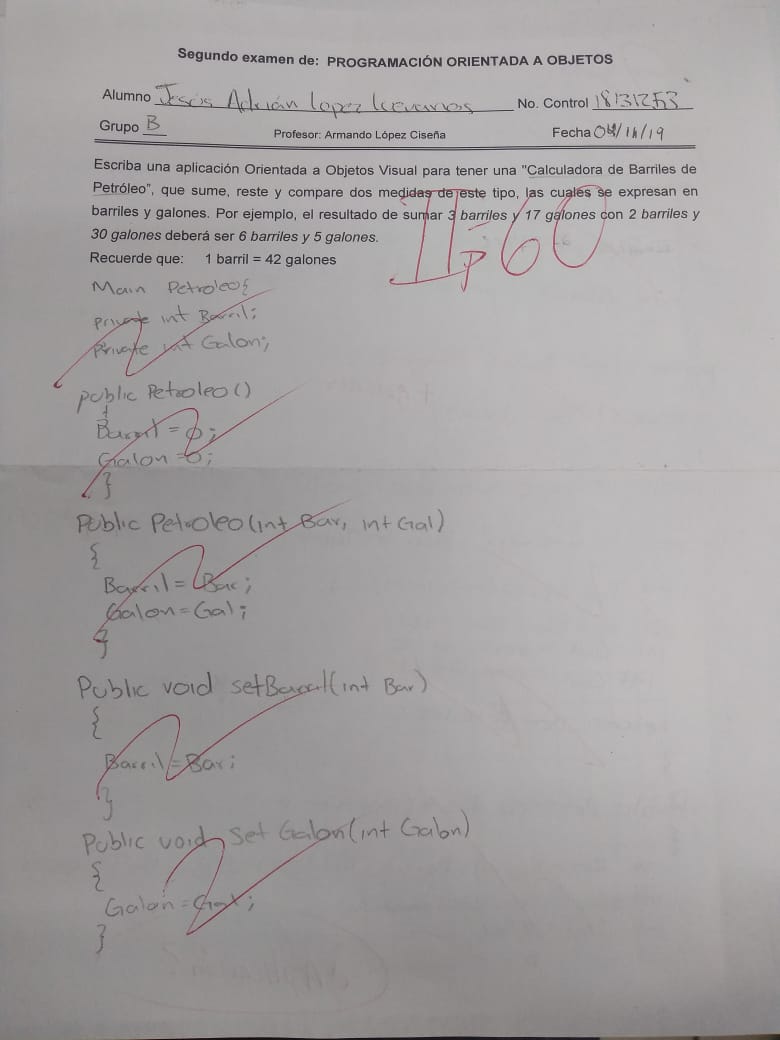 Segundo examen de: PROGRAMACIÓN ORIENTADA A OBJETOS
Alumno Jesús Adrián Lopez No. Control 18131253
Grupo B Profesor: Armando López Ciseña Fecha 04/11/19
Escriba una aplicación Orientada a Objetos Visual para tener una "Calculadora de Barriles de
Petróleo", que sume, reste y compare dos medidas de este tipo, las cuales se expresan en
barriles y galones. Por ejemplo, el resultado de sumar 3 barriles y 17 galones con 2 barriles y
30 galones deberá ser 6 barriles y 5 galones.
Recuerde que: 1 barril = 42 galones
60
Main Petroleo{
private int Barril;
Private int Galon;
public Petroleo()
{
Barril = 0;
Galon = 0;
}
Public Petroleo(int Bar, int Gal)
{
Barril = Bar;
Galon = Gal;
}
Public void setBarril(int Bar)
{
Barril = Bar;
}
Public void set Galon(int Galon)
{
Galon = Gal;
}